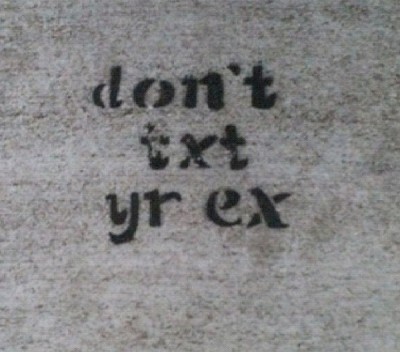 don't
txt
yr ex